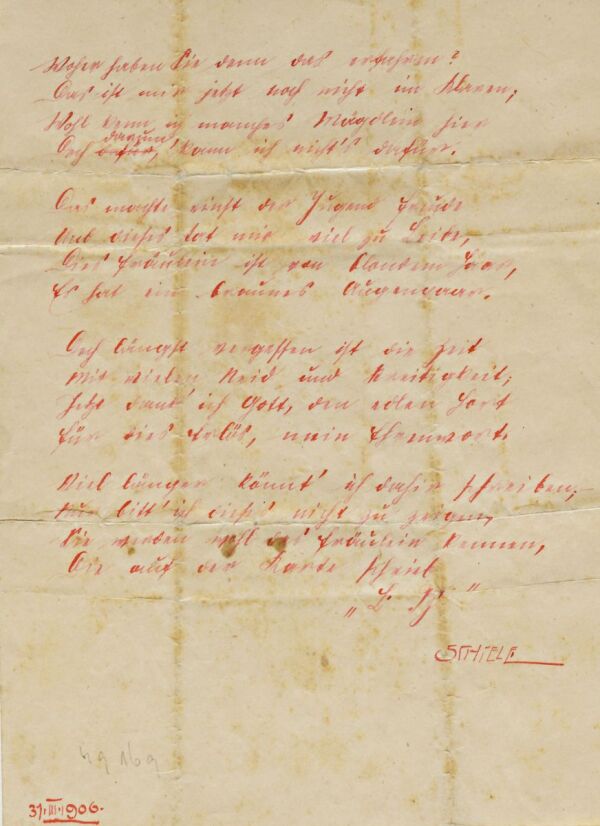 Woher haben Sie denn das erfahren?
Das ist mir jetzt noch nicht im Klaren;
Wohl kenn ich manches Mägdlein hier
Doch darum kann ich nicht's dafür.
Das machte einst der Jugend Freude
Und dieses tat mir viel zu Leide,
Dies Fräulein ist von blondem Haar,
Es hat ein braunes Augenpaar.
Doch längst vergessen ist die Zeit
Mit vielen Neid und Streitigkeit;
Jetzt dank' ich Gott, den edlen Hort
Für dies Erlös, mein Ehrenwort.
Viel länger könnt' ich dahir schreiben;
Nur bitt' ich dieses nicht zu zeigen,
Sie werden wohl das Fräulein kennen,
Die auf der Karte schrieb
SCHIELE
31.III.1906.